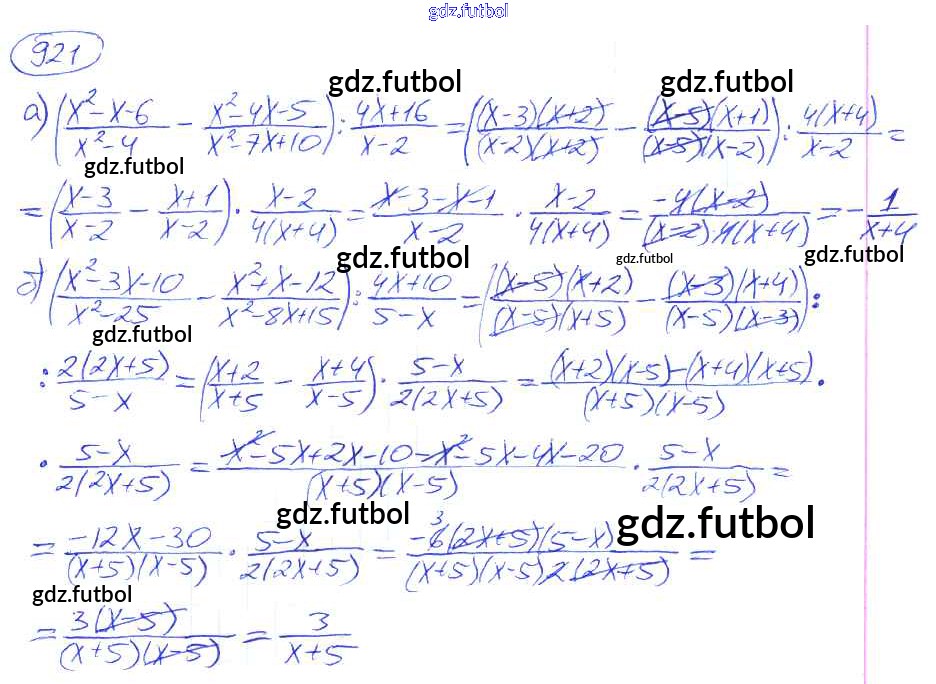 gdz.futbol
921
gdz.futbol gdz.futbol
а) ((x²-x-6)/(x²-4) - (x²-4x-5)/(x²-7x+10)) : (4x+16)/(x-2) = (((x-3)(x+2))/((x-2)(x+2)) - ((x-5)(x+1))/((x-5)(x-2))) : (4(x+4))/(x-2) =
gdz.futbol
= ((x-3)/(x-2) - (x+1)/(x-2)) · (x-2)/(4(x+4)) = (x-3-x-1)/(x-2) · (x-2)/(4(x+4)) = (-4(x-2))/((x-2)·4(x+4)) = -1/(x+4)
gdz.futbol gdz.futbol gdz.futbol
б) ((x²-3x-10)/(x²-25) - (x²+x-12)/(x²-8x+15)) : (4x+10)/(5-x) = (((x-5)(x+2))/((x-5)(x+5)) - ((x-3)(x+4))/((x-5)(x-3))) :
gdz.futbol
: (2(2x+5))/(5-x) = ((x+2)/(x+5) - (x+4)/(x-5)) · (5-x)/(2(2x+5)) = ((x+2)(x-5)-(x+4)(x+5))/((x+5)(x-5)) ·
· (5-x)/(2(2x+5)) = (x²-5x+2x-10-x²-5x-4x-20)/((x+5)(x-5)) · (5-x)/(2(2x+5)) =
gdz.futbol gdz.futbol
= (-12x-30)/((x+5)(x-5)) · (5-x)/(2(2x+5)) = (-6³(2x+5)(5-x))/((x+5)(x-5)2(2x+5)) =
gdz.futbol
= (3(x-5))/((x+5)(x-5)) = 3/(x+5)